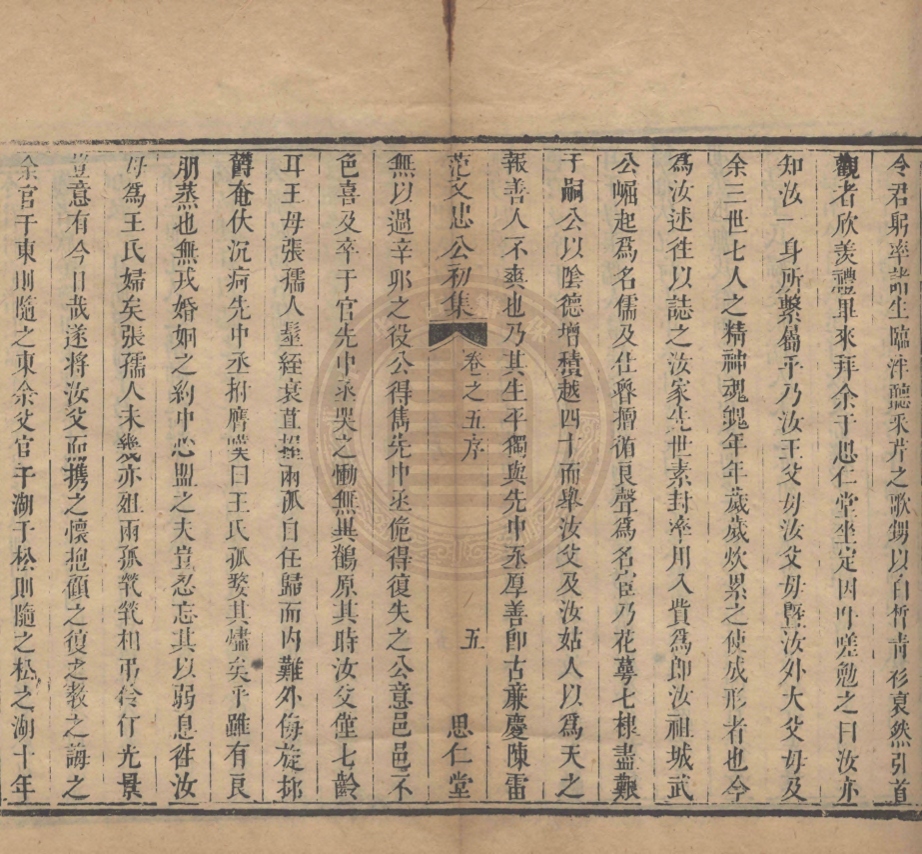 令君躬率諸生臨泮聽采芹之歌鍔以白皙青衫裒然引首
觀者欣羨禮畢來拜余于思仁堂坐定因吁嗟勉之曰汝亦
知汝一身所繫屬乎乃汝王父母汝父母曁汝外大父母及
余三世七人之精神魂魄年年歲歲炊累之使成形者也今
爲汝述徃以誌之汝家先世素封率用入貲爲郎汝祖城武
公崛起爲名儒及仕釋擅循良聲爲名宦乃花萼七棣盡艱
于嗣公以陰德增積越四十而舉汝父及汝姑人以爲天之
報善人不爽也乃其生平獨與先中丞厚善卽古蔗慶陳雷
范文忠公初集 卷之五序 五 思仁堂
無以過辛卯之役公得雋先中丞佹得復失之公意邑邑不
色喜及卒于官先中丞哭之慟無異鶺原其時汝父僅七齡
耳王母張孺人髽絰衰苴提兩孤自任歸而內難外侮旋抑
欝奄伏沉疴先中丞拊膺嘆曰王氏孤嫠其燼矣乎雖有良
朋烝也無戎婚姻之約中心盟之夫豈忍忘其以弱息徃汝
母爲王氏婦矣張孺人未幾亦殂兩孤煢煢相弔伶仃光景
豈意有今日哉遂將汝父而携之懷抱顧之復之敎之誨之
余官于東則隨之東余父官于湖于松則隨之松之湖十年